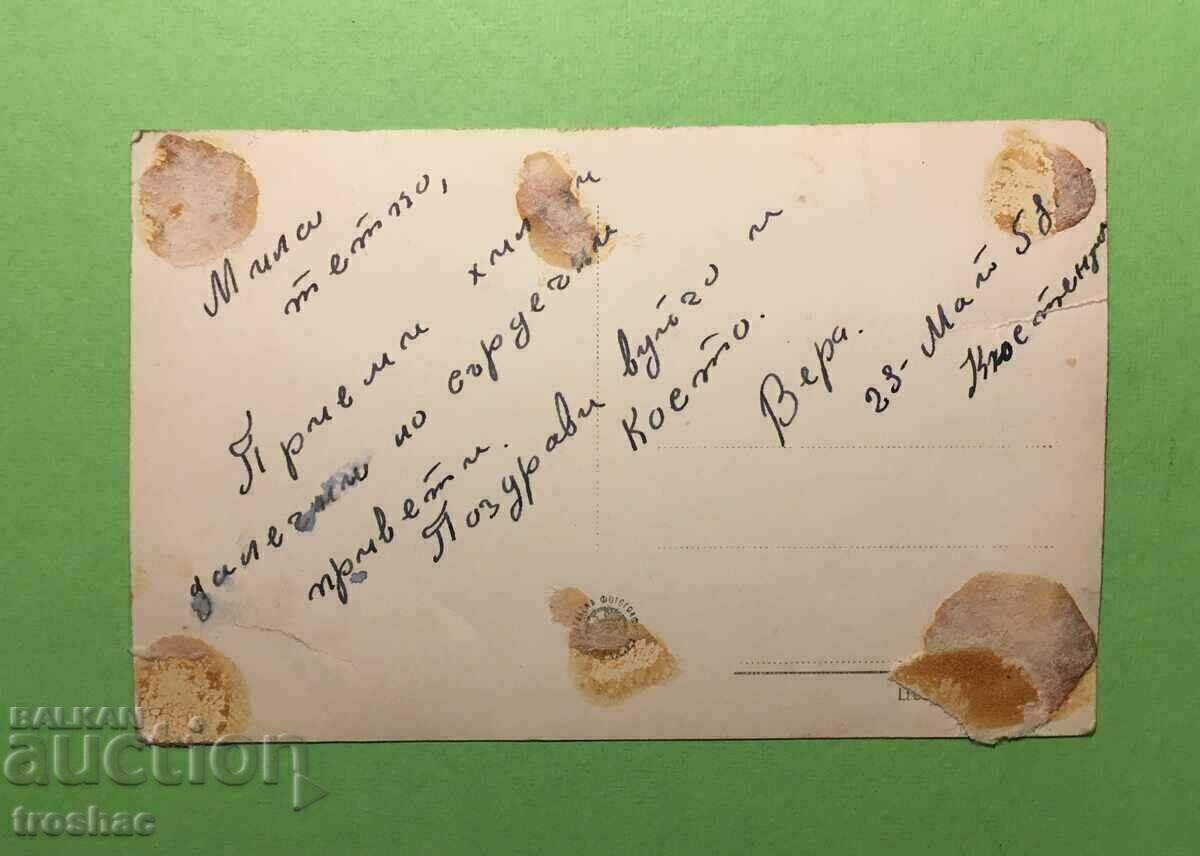 Мила
тетьо,
Приеми хил
далечни но сърдечни
привети.
Поздрави вуйчо и
Косто.
Вера.
23-Май 58
Кюстенди
BALKAN
auction
troshac